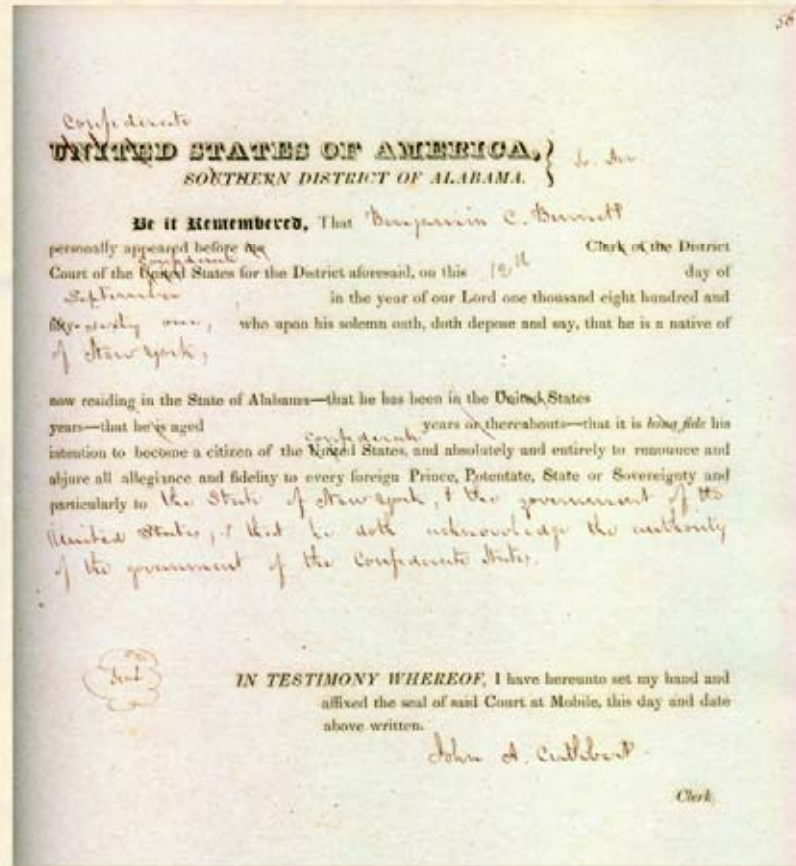 56
Confederate
UNITED STATES OF AMERICA,
SOUTHERN DISTRICT OF ALABAMA.
Be it Remembered, That Benjamin C. Burnett
personally appeared before me Clerk of the District
Confederate
Court of the United States for the District aforesaid, on this 12th day of
September, in the year of our Lord one thousand eight hundred and
fifty-sixty one, who upon his solemn oath, doth depose and say, that he is a native of
of New York,
now residing in the State of Alabama—that he has been in the United States
years—that he is aged years or thereabouts—that it is bona fide his
Confederate
intention to become a citizen of the United States, and absolutely and entirely to renounce and
abjure all allegiance and fidelity to every foreign Prince, Potentate, State or Sovereignty and
particularly to the State of New York, & the government of the
United States, & that he doth acknowledge the authority
of the government of the Confederate States.
Seal
IN TESTIMONY WHEREOF, I have hereunto set my hand and
affixed the seal of said Court at Mobile, this day and date
above written.
John A. Cuthbert
Clerk